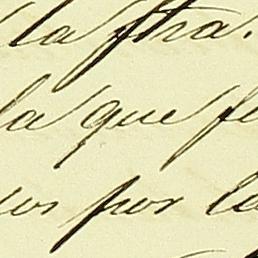 la ftra.
la que fu
os por la